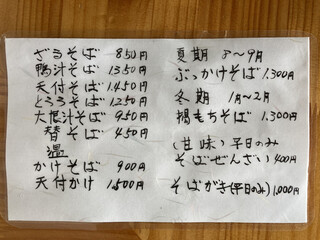 ざるそば 850円
鴨汁そば 1350円
天付そば 1.450円
とろろそば 1.250円
大根汁そば 950円
替そば 450円
温
かけそば 900円
天付かけ 1.500円
夏期 8〜9月
ぶっかけそば 1.300円
冬期 1月〜2月
揚もちそば 1.300円
(甘味) 平日のみ
そばぜんざい 400円
そばがき(平日のみ) 1,000円